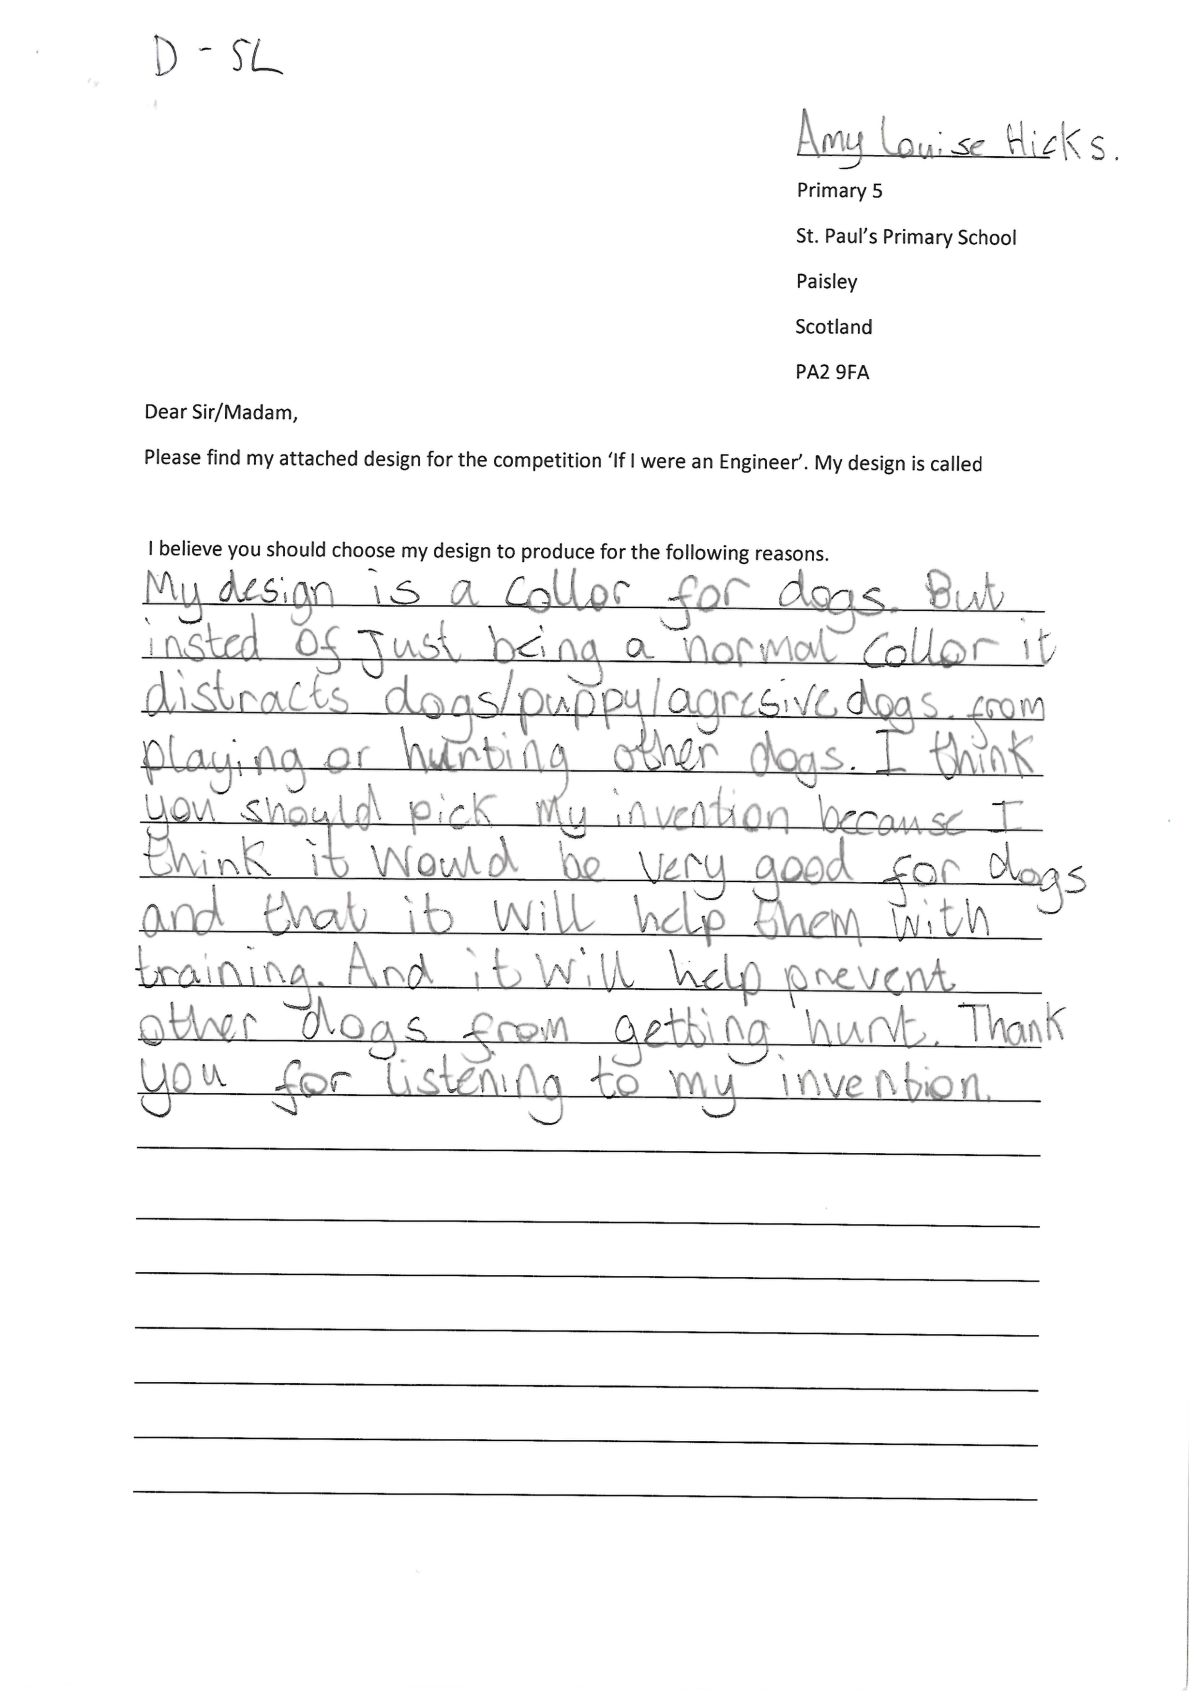 D - SL
Amy Louise Hicks.
Primary 5
St. Paul's Primary School
Paisley
Scotland
PA2 9FA
Dear Sir/Madam,
Please find my attached design for the competition 'If I were an Engineer'. My design is called
I believe you should choose my design to produce for the following reasons.
My design is a collor for dogs. But
insted of Just being a normal collor it
distracts dogs/puppy/agresive dogs. from
playing or hurting other dogs. I think
you should pick my invention because I
think it would be very good for dogs
and that it will help them with
training. And it will help prevent
other dogs from getting hurt. Thank
you for listening to my invention.